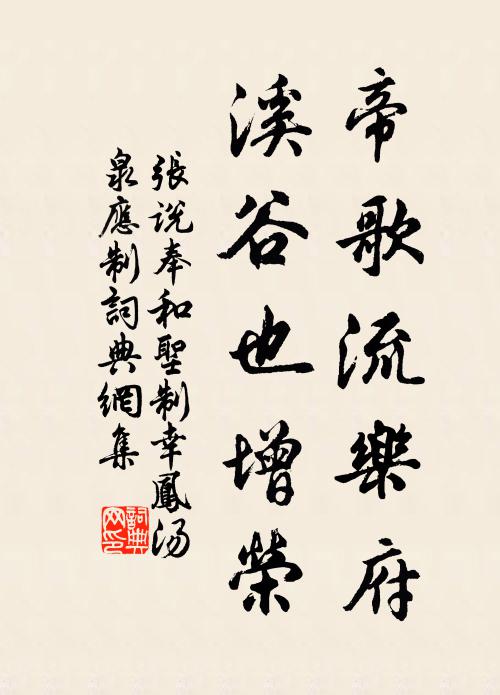 帝歌流樂府
溪谷也增榮
張說奉和聖制幸鳳湯
泉應制詞典網集
詞典网印